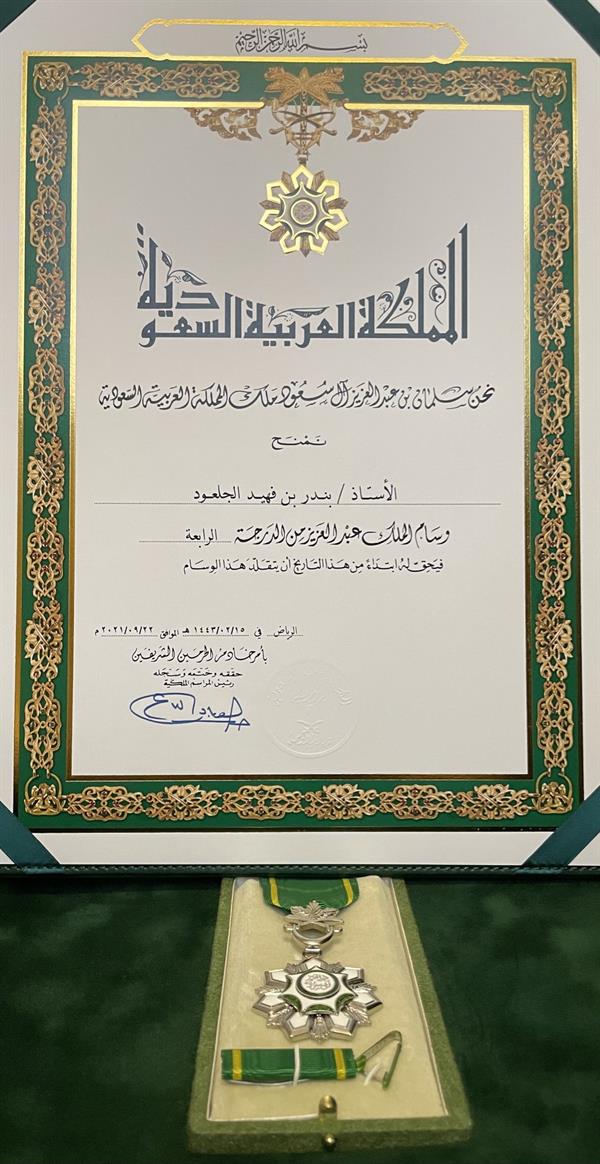 بسم الله الرحمن الرحيم
المملكة العربية السعودية
نحن سلمان بن عبد العزيز آل سعود ملك المملكة العربية السعودية
نمنح
الأستاذ / بندر بن فهيد الجلعود
وسام الملك عبد العزيز من الدرجة الرابعة
فيحق له ابتداءً من هذا التاريخ أن يتقلد هذا الوسام
الرياض في ١٤٤٣/٠٢/١٥ هـ الموافق ٢٠٢١/٠٩/٢٢ م
بأمر خادم الحرمين الشريفين
حققه وختمه وسجله
رئيس المراسم الملكية